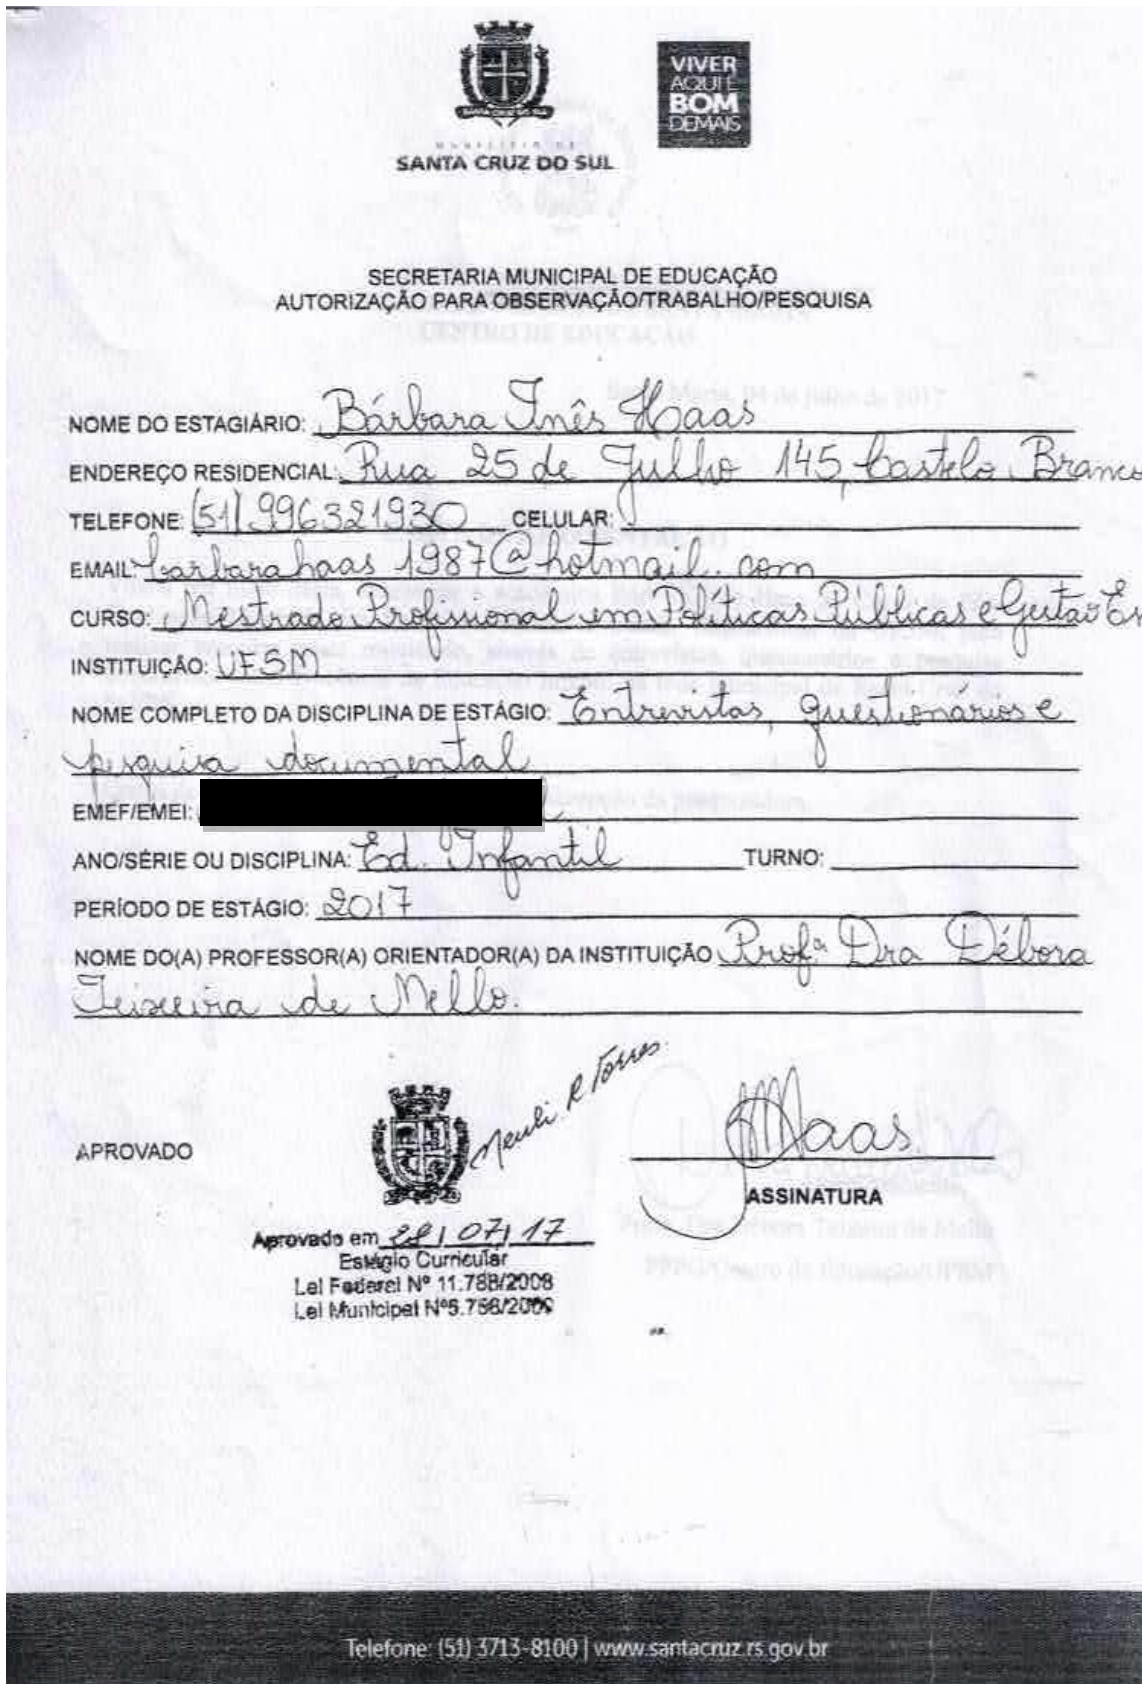 SANTA CRUZ DO SUL
VIVER
AQUI É
BOM
DEMAIS
MUNICÍPIO DE
SANTA CRUZ DO SUL
SECRETARIA MUNICIPAL DE EDUCAÇÃO
AUTORIZAÇÃO PARA OBSERVAÇÃO/TRABALHO/PESQUISA
CENTRO DE EDUCAÇÃO
Maria, 04 de julho de 2017
NOME DO ESTAGIÁRIO: Bárbara Inês Haas
ENDEREÇO RESIDENCIAL: Rua 25 de Julho 145, Castelo Branco
TELEFONE: (51) 996321930 CELULAR:
EMAIL: barbarahaas1987@hotmail.com
CURSO: Mestrado Profissional em Políticas Públicas e Gestão
INSTITUIÇÃO: UFSM
NOME COMPLETO DA DISCIPLINA DE ESTÁGIO: Entrevistas, questionários e
pesquisa documental
EMEF/EMEI:
ANO/SÉRIE OU DISCIPLINA: Ed. Infantil TURNO:
PERÍODO DE ESTÁGIO: 2017
NOME DO(A) PROFESSOR(A) ORIENTADOR(A) DA INSTITUIÇÃO Profª Dra Débora
Teixeira de Mello.
R Torres
APROVADO
Haas
ASSINATURA
Aprovado em 28/07/17
Estágio Curricular
Lei Federal Nº 11.788/2008
Lei Municipal Nº5.756/2009
Telefone: (51) 3713-8100 | www.santacruz.rs.gov.br